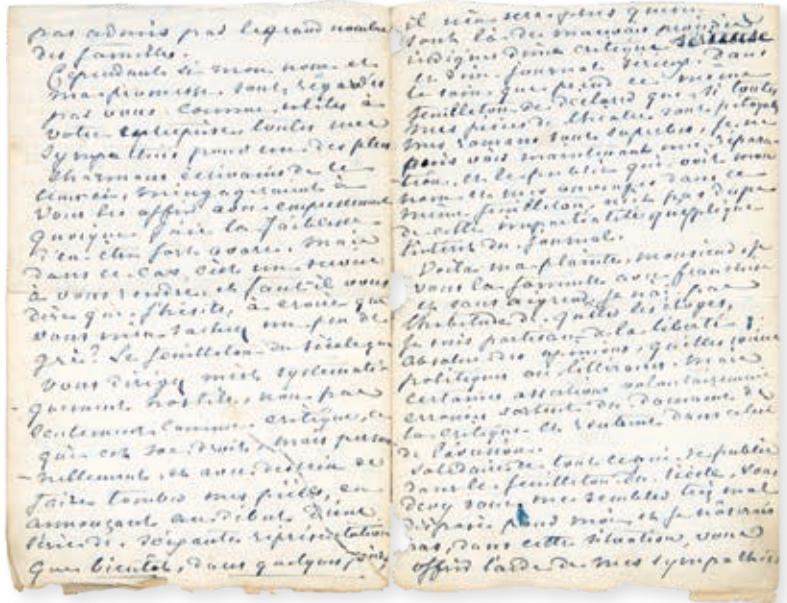 pas admis par le grand nombre
des familles.
Cependant si mon nom et
ma promesse sont regardés
par vous comme utiles à
votre entreprise toutes mes
sympathies pour un des plus
charmans écrivains de ce
tems ci, m'engageraient à
vous les offrir avec empressement
quoique j'aie la faiblesse
d'en être fort avare. Mais
dans ce cas, c'est un service
à vous rendre, et faut-il vous
dire que j'hésite, à croire que
vous m'en sachiez un peu de
gré? Le feuilleton du Siècle que
vous dirigez m'est systemati
quement hostile, non pas
seulement comme critique, ce
qui est son droit, mais person
nellement, et avec dessein de
faire tomber mes pièces, en
annonçant au début d'une
série de soixante représentations
que bientôt, dans quelques jours,
il n'en sera plus question.
sont là de mauvais procédés
indignes d'une critique sérieuse
et d'un journal sérieux. Dans
le soin que prend ce même
feuilleton de déclarer que si toutes
mes pièces de théâtre sont pitoyables
mes romans sont superbes, je ne
puis voir maintenant une répara
tion, et le public qui voit mon
nom et mes ouvrages dans ce
même feuilleton n'est pas dupe
de cette impartialité qu'explique
l'intérêt du journal.
Voilà ma plainte, monsieur, je
vous la formule avec franchise
et sans aigreur. Je n'ai pas
l'habitude de quêter les éloges,
je suis partisan de la liberté
absolue des opinions, qu'elles soient
politiques ou littéraires. Mais
certaines assertions volontairement
erronées sortent du domaine de
la critique et rentrent dans celui
de
solidaire de tout ce qui se publie
dans le feuilleton du Siècle, vous
devez vous me sembler très mal
disposé pour moi et je n'oserais
pas, dans cette situation, vous
offrir l'aide de mes sympathies